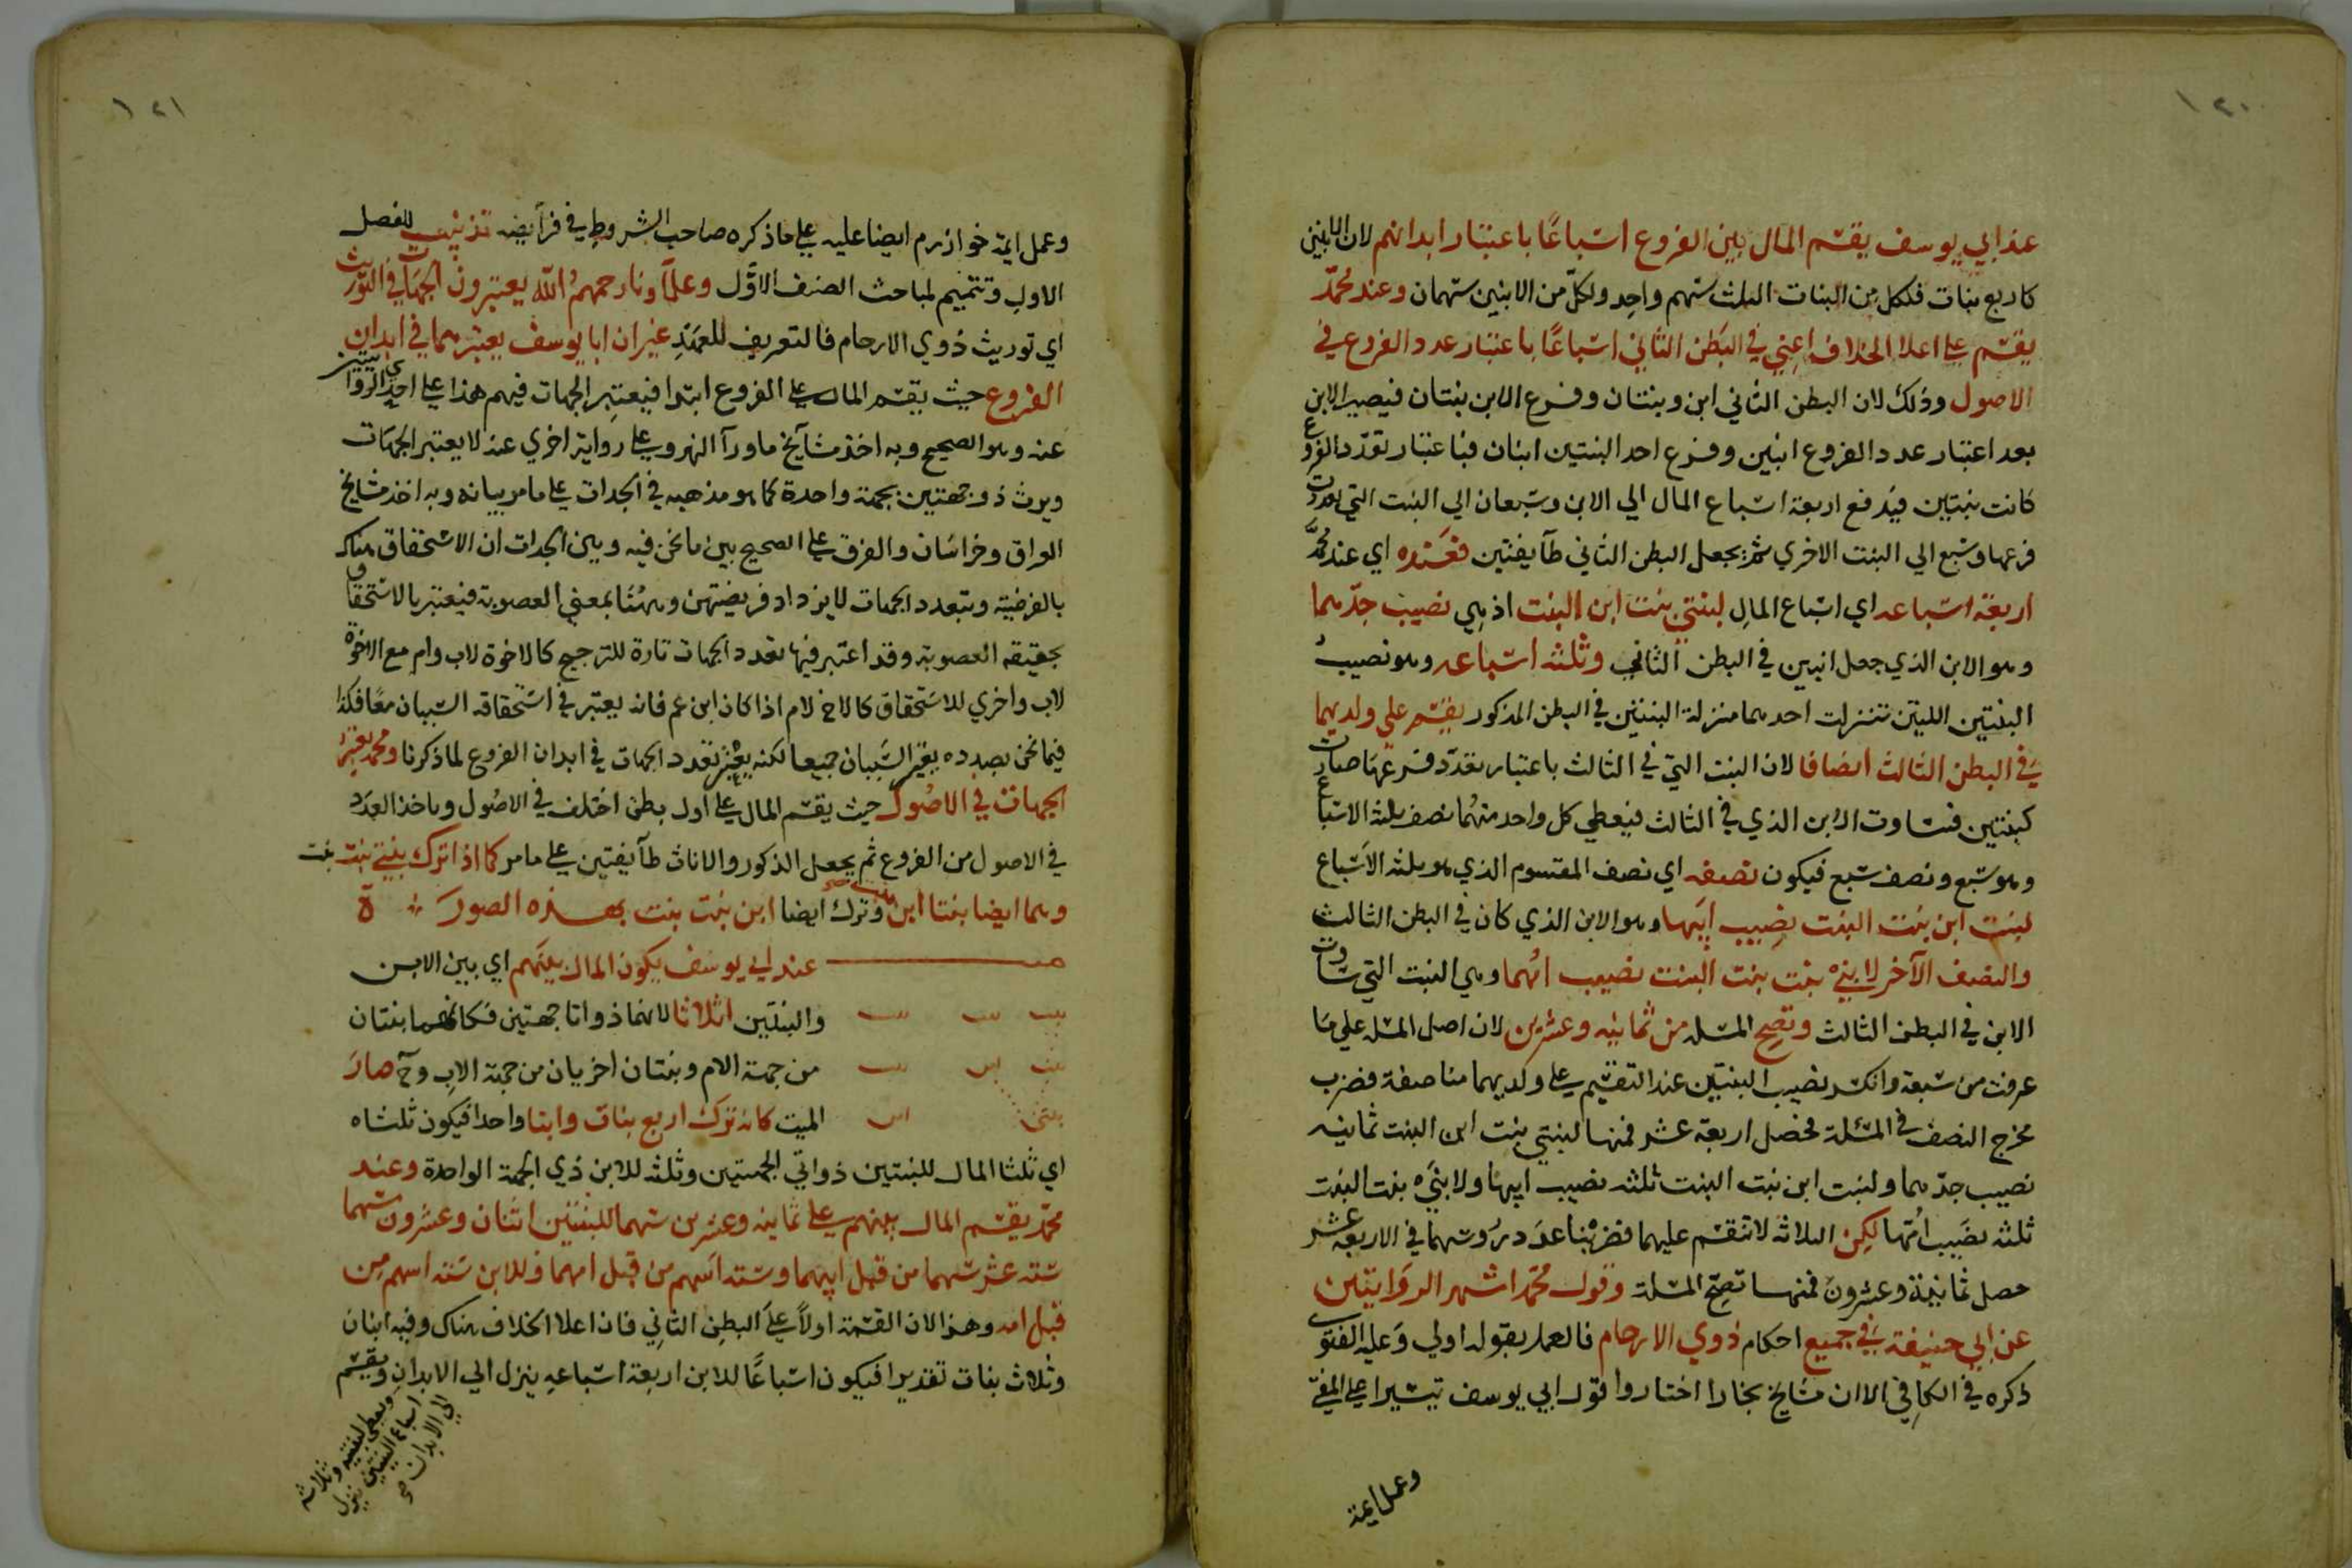 ١٢٠
عند ابي يوسف يقسم المال بين الفروع اسباعًا باعتبار ابدانهم لان الابنين
كاربع بنات فلكل من البنات الثلث سهم واحد ولكلّ من الابنين سهمان وعند محمّد
يقسم علي اعلا الخلاف اعني في البطن الثاني اسباعًا باعتبار عدد الفروع في
الاصول وذلك لان البطن الثاني ابن وبنتان وفرع الابن بنتان فيصير الابن
بعد اعتبار عدد الفروع ابنين وفرع احد البنتين ابنان فباعتبار تعدّد الفروع
كانت بنتين فيدفع اربعة اسباع المال الي الابن وسبعان الي البنت التي تعددت
فرعها وسبع الي البنت الاخري ثم يجعل البطن الثاني طآيفتين فعنده اي عند محمّد
اربعة اسباعه اي اسباع المال لبنتي بنت ابن البنت اذ هي نصيب جدّهما
وهو الابن الذي جعل ابنين في البطن الثاني وثلثة اسباعه وهو نصيب
البنتين اللتين تنزلت احدهما منزلة البنتين في البطن المذكور يقسم علي ولديهما
في البطن الثالث انصافا لان البنت التي في الثالث باعتبار تعدّد فرعها صارت
كبنتين فتساوت الابن الذي في الثالث فيعطي كل واحد منهما نصف ثلثة الاسباع
وهو سبع ونصف سبع فيكون نصفه اي نصف المقسوم الذي هو ثلثة الاسباع
لبنت ابن بنت البنت نصيب ابيها وهو الابن الذي كان في البطن الثالث
والنصف الآخر لابني بنت بنت البنت نصيب امهما وهي البنت التي ساوت
الابن في البطن الثالث وتصح المسلة من ثمانيه وعشرين لان اصل المسلة علي ما
عرفت من سبعة وانكسر نصيب البنتين عند التقسيم علي ولديهما مناصفة فضرب
مخرج النصف في المسئلة فحصل اربعة عشر فمنها لبنتي بنت ابن البنت ثمانيه
نصيب جدّهما ولبنت ابن بنت البنت ثلثة نصيب ابيها ولابني بنت بنت البنت
ثلثة نصيب امّها لكن الثلاثة لا تنقسم عليهما فضربنا عدد رؤسهما في الاربعة عشر
حصل ثمانية وعشرون فمنها تصح المسلة وقول محمّد اشهر الروايتين
عن ابي حنيفة في جميع احكام ذوي الارحام فالعمل بقوله اولي وعليه الفتوي
ذكره في الكافي الا ان مشايخ بخارا اختاروا قول ابي يوسف تيسيرا علي المفتي
وعمل ايمة
١٢١
وعمل ايمة خوارزم ايضا عليه علي ما ذكره صاحب الشروط في فرآيضه تذنيب للفصل
الاول وتتميم لمباحث الصنف الاوّل وعلمآونا رحمهم الله يعتبرون الجهات في التوريث
اي توريث ذوي الارحام فالتعريف للعهد غير ان ابا يوسف يعتبرهما في ابدان
الفروع حيث يقسم المال علي الفروع ابتدا فيعتبر الجهات فيهم هذا علي احدي الروايتين
عنه وهو الصحيح وبه اخذ مشآيخ ماورآ النهر وعلي رواية اخري عنه لا يعتبر الجهات
ويرث ذو جهتين بجهة واحدة كما هو مذهبه في الجدات علي ما مر بيانه وبه اخذ مشايخ
العراق وخراسان والفرق علي الصحيح بين ما نحن فيه وبين الجدات ان الاستحقاق هناك
بالفرضية وبتعدد الجهات لا يزداد فريضتهن وههنا بمعني العصوبة فيعتبر بالاستحقاق
بحقيقة العصوبة وقد اعتبر فيها تعدد الجهات تارة للترجيح كالاخوة لاب وام مع الاخوة
لاب واخري للاستحقاق كالاخ لام اذا كان ابن عم فانه يعتبر في استحقاقه السببان معًا فكذا
فيما نحن بصدده يعتبر السّببان جميعا لكنه يعتبر تعدد الجهات في ابدان الفروع لما ذكرنا ومحمد يعتبر
الجهات في الاصول حيث يقسم المال علي اول بطن اختلف في الاصول وياخذ العدد
في الاصول من الفروع ثم يجعل الذكور والاناث طآيفتين علي ما مر كما اذا ترك بنتي بنت بنت
وهما ايضا بنتا ابن بنت وترك ايضا ابن بنت بنت بهذه الصورة
عند ابي يوسف يكون المال بينهم اي بين الابن
بنت بنت بنت والبنتين اثلاثا لانهما ذواتا جهتين فكانهما بنتان
بنت ابن بنت من جهة الام وبنتان اخريان من جهة الاب وح صار
بنتي ابن الميت كانه ترك اربع بنات وابنا واحدا فيكون ثلثاه
اي ثلثا المال للبنتين ذواتي الجهتين وثلثه للابن ذي الجهة الواحدة وعند
محمّد يقسم المال بينهم علي ثمانيه وعشرين سهما للبنتين اثنان وعشرون سهما
ستة عشر سهما من قبل ابيهما وستة اسهم من قبل امهما وللابن ستة اسهم من
قبل امه وهذا لان القسمة اولًا علي البطن الثاني فان اعلا الخلاف هناك وفيه ابنان
وثلاث بنات تقديرا فيكون اسباعًا للابن اربعة اسباعه ينزل الي الابدان ويقسم
ويعطي البنتين وثلاثة
اسباع البنتين ينزل
الي الابدان صح